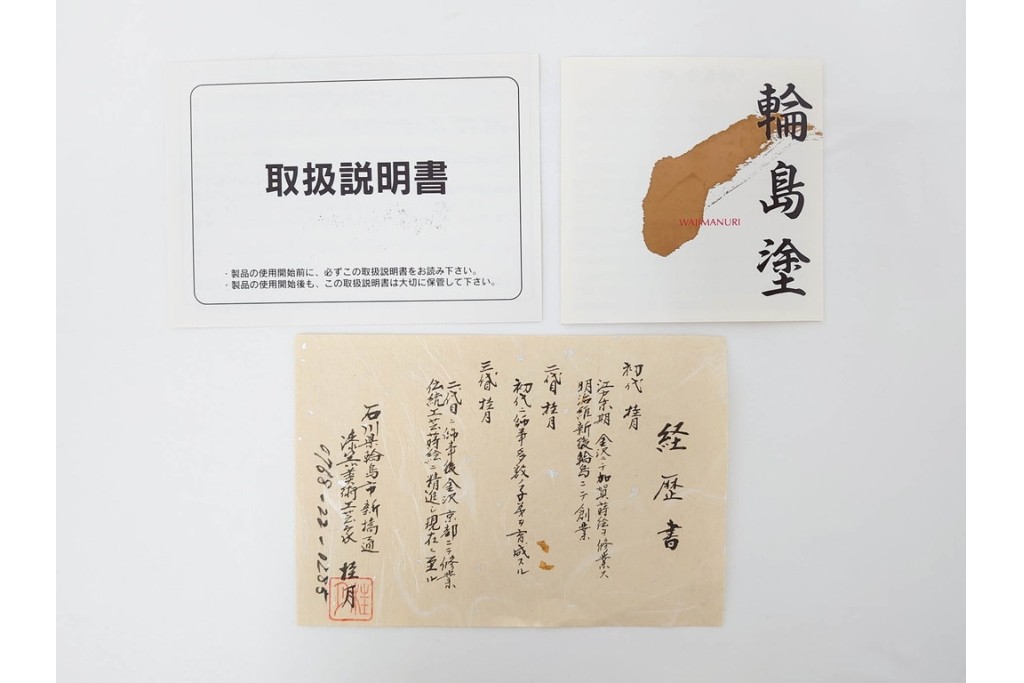 取扱説明書
・製品の使用開始前に、必ずこの取扱説明書をお読み下さい。
・製品の使用開始後も、この取扱説明書は大切に保管して下さい。
輪島塗
WAJIMANURI
経歴書
初代 桂月
江戸末期金沢ニテ加賀蒔絵ヲ修業ス
明治維新後輪島ニテ創業
二代目 桂月
初代ニ師事多数ノ子弟ヲ育成スル
三代目 桂月
二代目ニ師事後金沢京都ニテ修業
伝統工芸蒔絵ニ精進し現在ニ至ル
石川県輪島市新橋通
漆芸美術工芸家 桂月
0768-22-0285